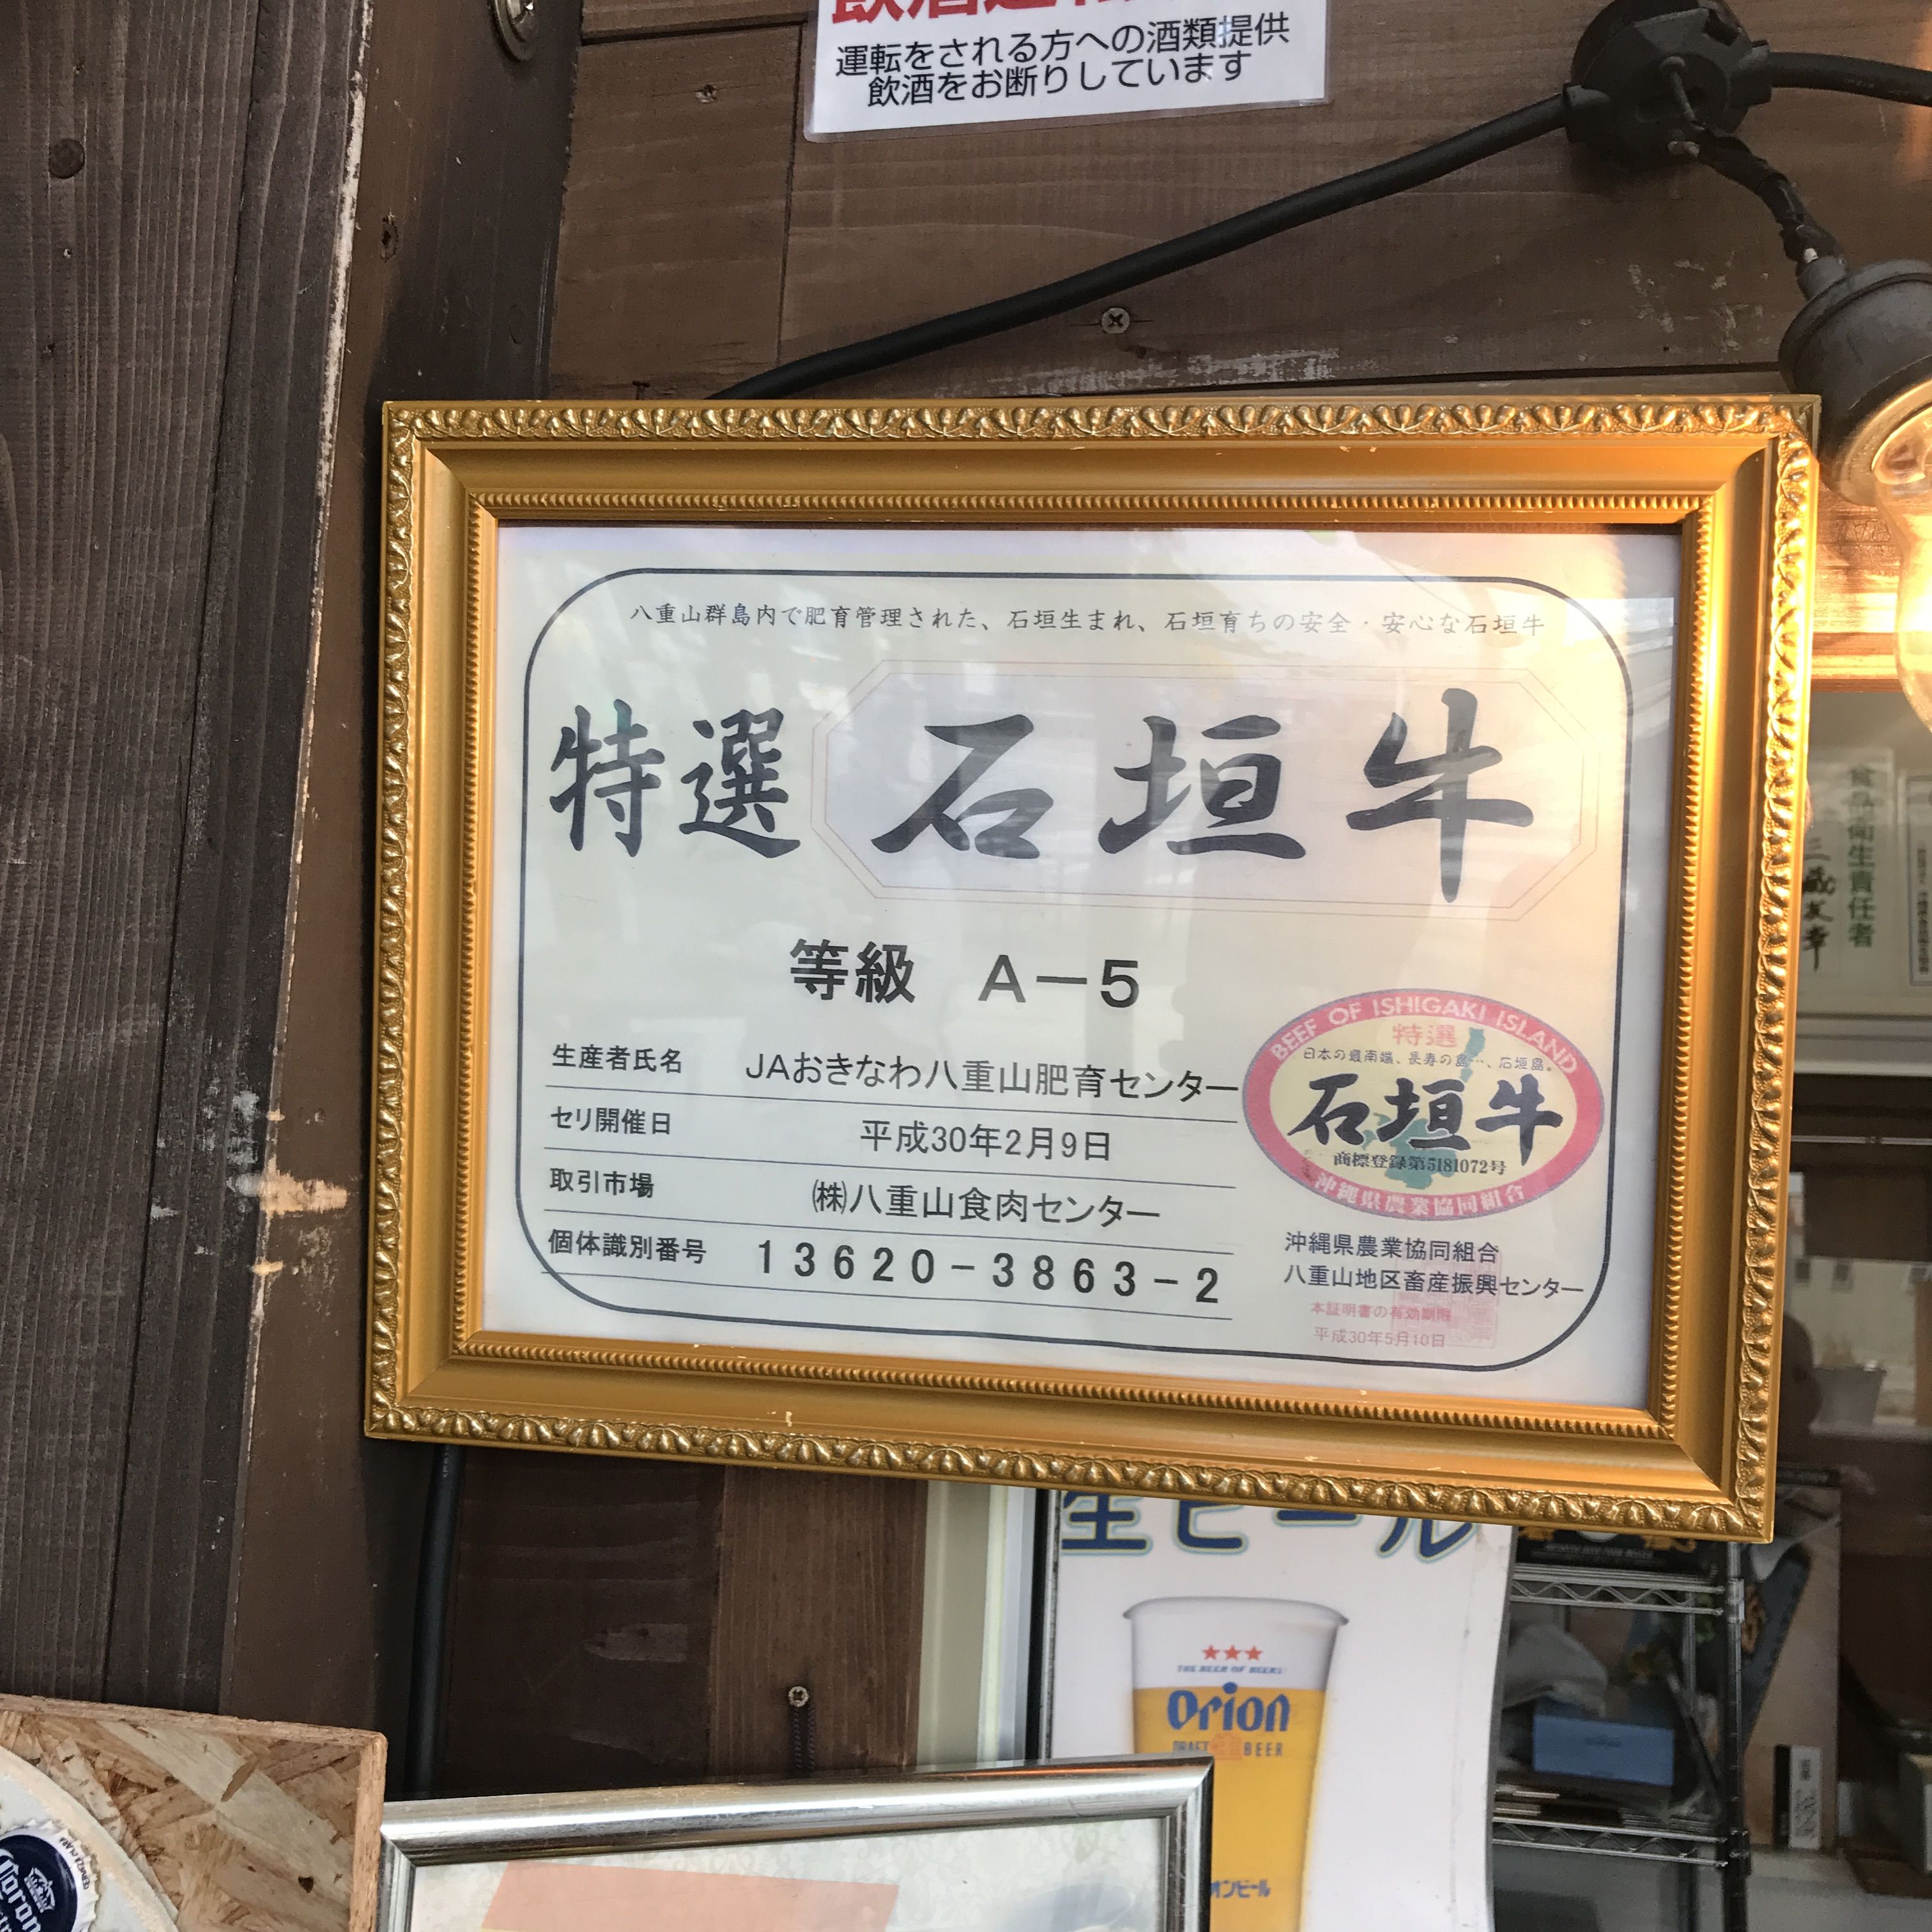 運転をされる方への酒類提供
飲酒をお断りしています
八重山群島内で肥育管理された、石垣生まれ、石垣育ちの安全・安心な石垣牛
特選 石垣牛
等級 A-5
生産者氏名 JAおきなわ八重山肥育センター
セリ開催日 平成30年2月9日
取引市場 ㈱八重山食肉センター
個体識別番号 13620-3863-2
BEEF OF ISHIGAKI ISLAND
特選
日本の最南端、長寿の島…、石垣島。
石垣牛
商標登録第5181072号
沖縄県農業協同組合
沖縄県農業協同組合
八重山地区畜産振興センター
本証明書の有効期限
平成30年5月10日
食品衛生責任者
生ビール
THE BEER OF BEERS
Orion
DRAFT BEER
オンビール
Corona